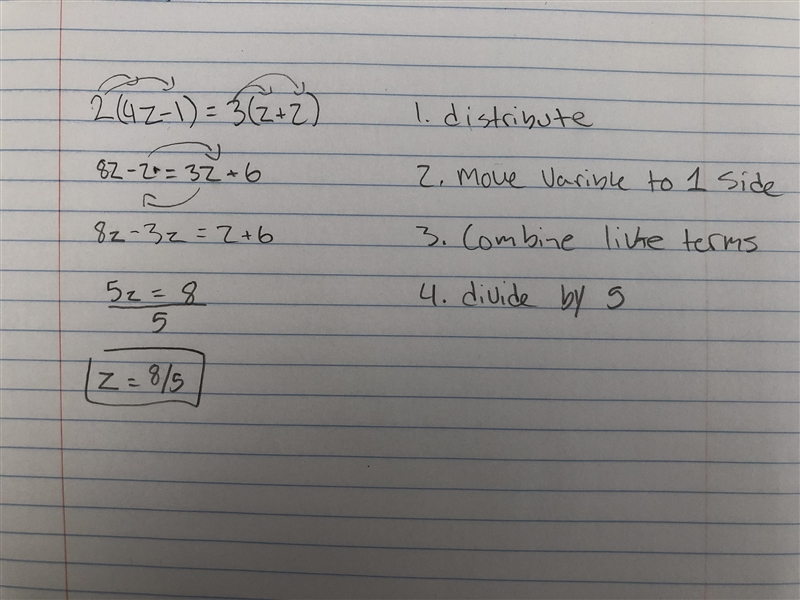 2(4z-1) = 3(z+2)
1. distribute
8z - 2 = 3z + 6
2. Move Varible to 1 Side
8z - 3z = 2 + 6
3. Combine like terms
5z = 8
5
4. divide by 5
z = 8/5